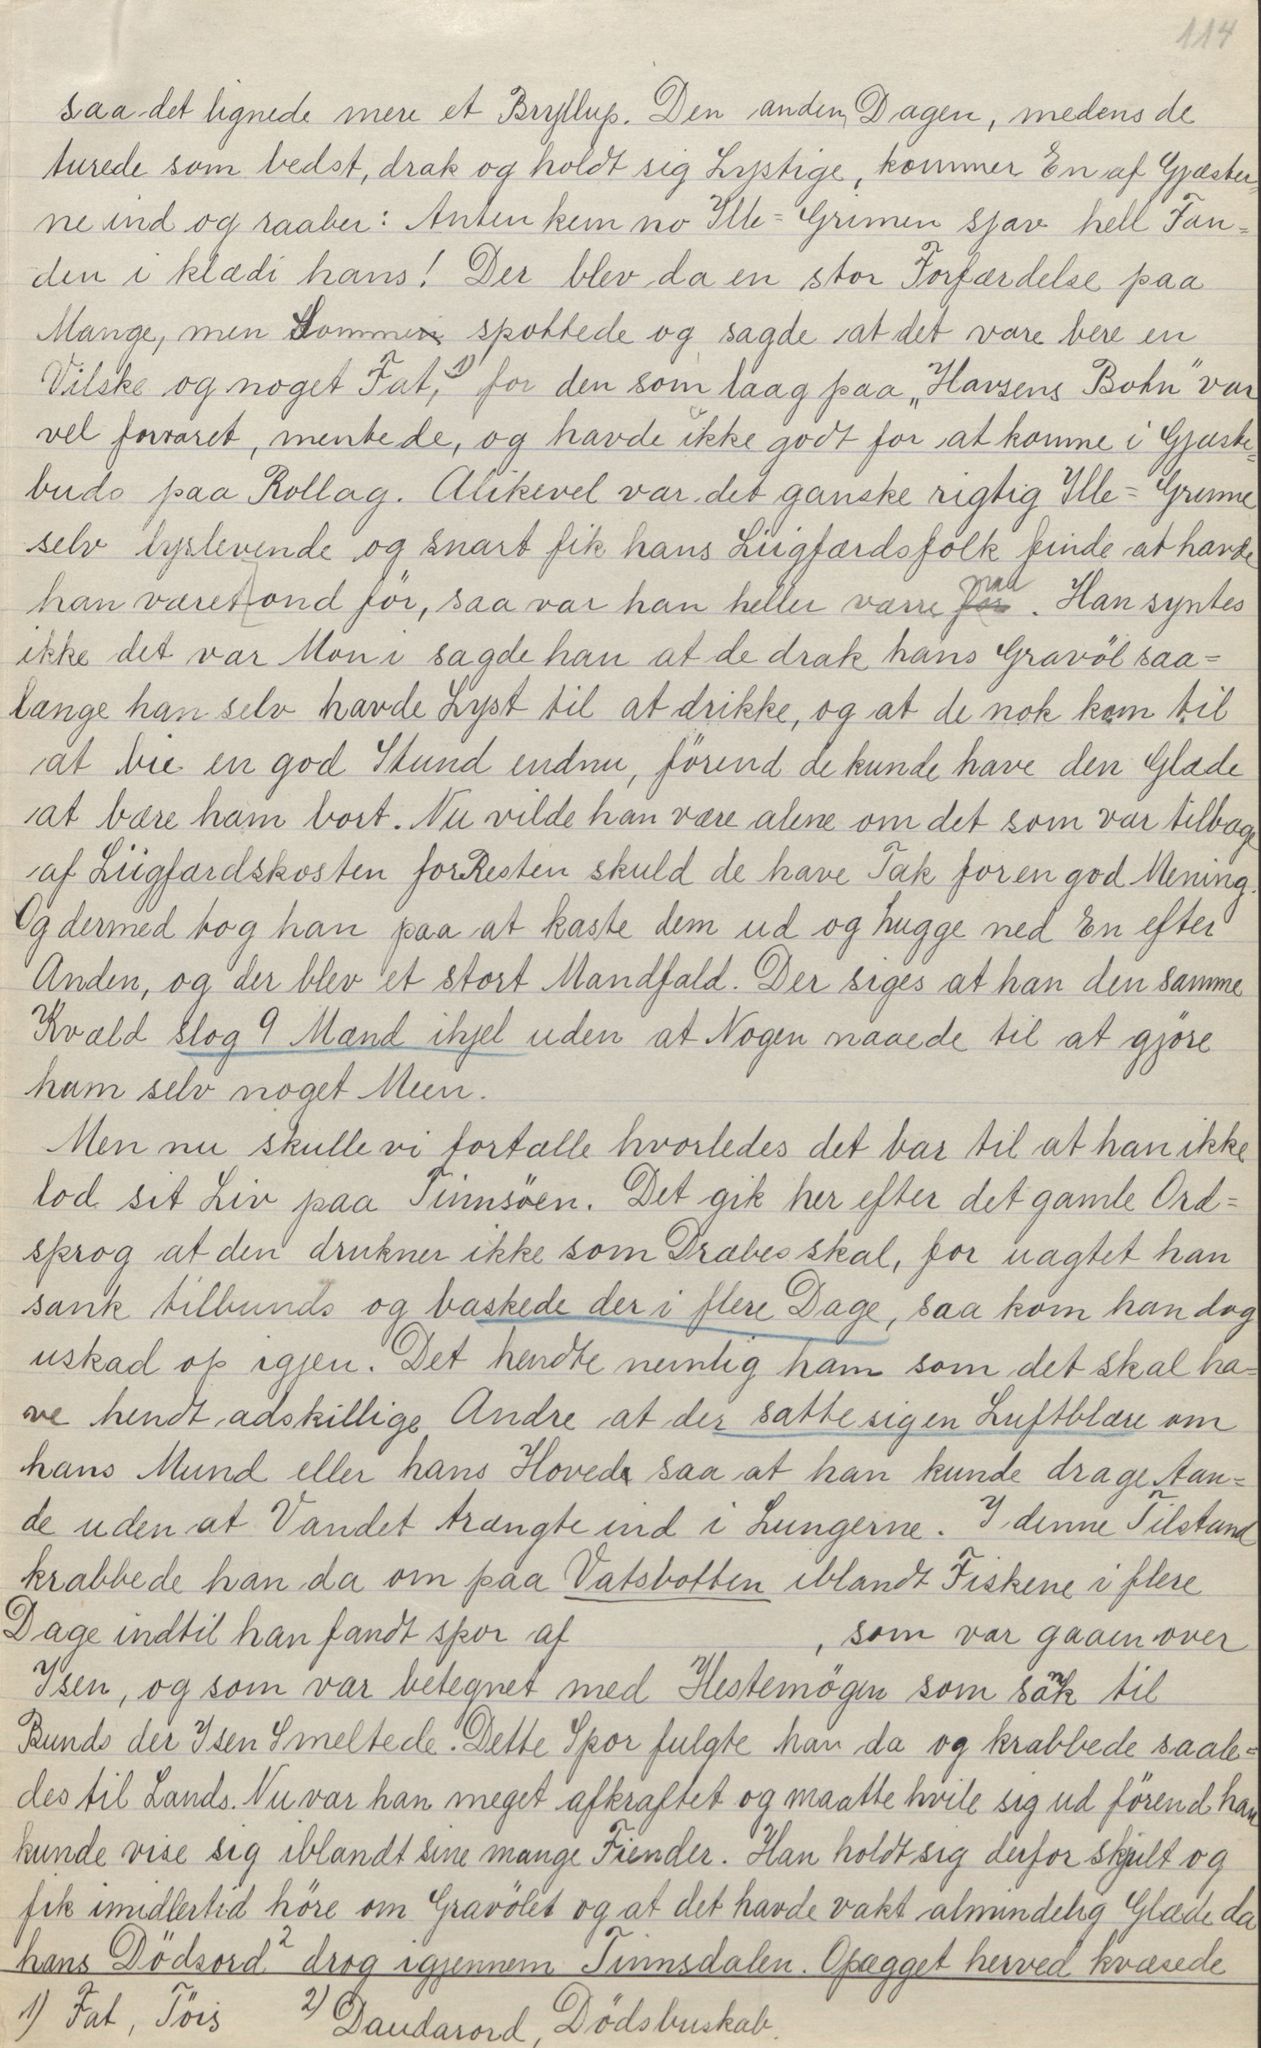 114
saa det lignede mere et Bryllup. Den anden Dagen, medens de
turede som bedst, drak og holdt sig Lystige, kommer En af Gjæster-
ne ind og raaber: Anten kem no Ille=Grimen sjav hell Fan=
den i klædi hans! Der blev da en stor Forfærdelse paa
Mange, men Somme spottede og sagde at det vare bere en
Vilske og noget Fat,¹⁾ for den som laag paa „Havsens Bohn" var
vel forvaret, mente de, og havde ikke godt for at komme i Gjæste-
buds paa Rollag. Alikevel var det ganske rigtig Ille=Grimme
selv lyslevende og snart fik hans Liigfærdsfolk finde at havde
han været ond för, saa var han heller værre nau. Han syntes
ikke det var Mon i sagde han at de drak hans Gravöl saa=
længe han selv havde Lyst til at drikke, og at de nok kom til
at bie en god Stund endnu, förend de kunde have den Glæde
at bære ham bort. Nu vilde han være alene om det som var tilbage
af Liigfærdskosten for Resten skuld de have Tak for en god Mening.
Og dermed tog han paa at kaste dem ud og hugge ned En efter
Anden, og der blev et stort Mandfald. Der siges at han den samme
Kvæld slog 9 Mænd ihjel uden at Nogen naaede til at gjöre
ham selv noget Meen.
Men nu skulle vi fortælle hvorledes det bar til at han ikke
lod sit Liv paa Tinnsöen. Det gik her efter det gamle Ord=
sprog at den drukner ikke som Dræbes skal, for uagtet han
sank tilbunds og baskede der i flere Dage, saa kom han dog
uskad op igjen. Det hendte nemlig ham som det skal ha=
ve hendt adskillige Andre at der satte sig en Luftblære om
hans Mund eller hans Hoved saa at han kunde drage Aan=
de uden at Vandet trængte ind i Lungerne. I denne Tilstand
krabbede han da om paa Vatsbotten iblandt Fiskene i flere
Dage indtil han fandt spor af , som var gaaen over
Isen, og som var betegnet med Hestemögen som sank til
Bunds der Isen Smeltede. Dette Spor fulgte han da og krabbede saale=
des til Lands. Nu var han meget afkraftet og maatte hvile sig ud förend han
kunde vise sig iblandt sine mange Fiender. Han holdt sig derfor skjult og
fik imidlertid höre om Gravölet og at det havde vakt almindelig Glæde da
hans Dödsord² drog igjennem Tinnsdalen. Opægget herved kvæsede
1) Fat, Töis 2) Daudarord, Dödsbuskab.